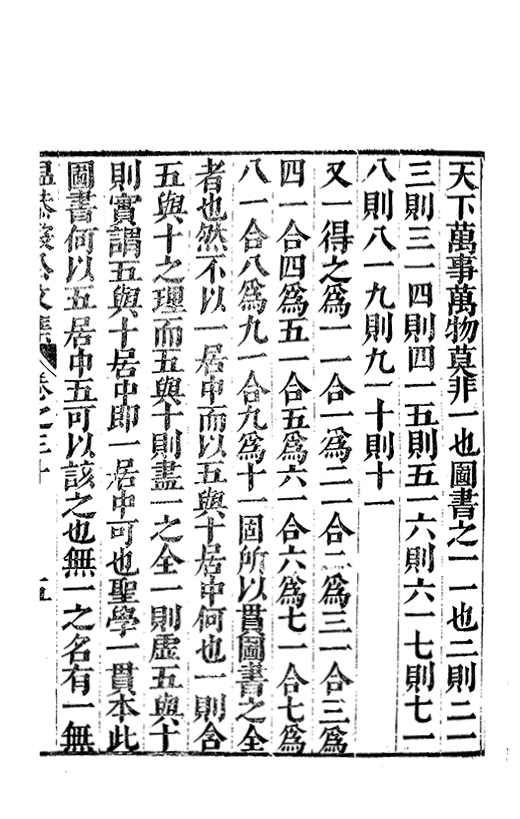 天下萬事萬物莫非一也圖書之一一也二則二一
三則三一四則四一五則五一六則六一七則七一
八則八一九則九一十則十一
又一得之爲一一合一爲二一合二爲三一合三爲
四一合四爲五一合五爲六一合六爲七一合七爲
八一合八爲九一合九爲十一固所以貫圖書之全
者也然不以一居中而以五與十居中何也一則含
五與十之理而五與十則盡一之全一則虛五與十
則實謂五與十居中即一居中可也聖學一貫本此
圖書何以五居中五可以該之也無一之名有一無
卷之三十 五